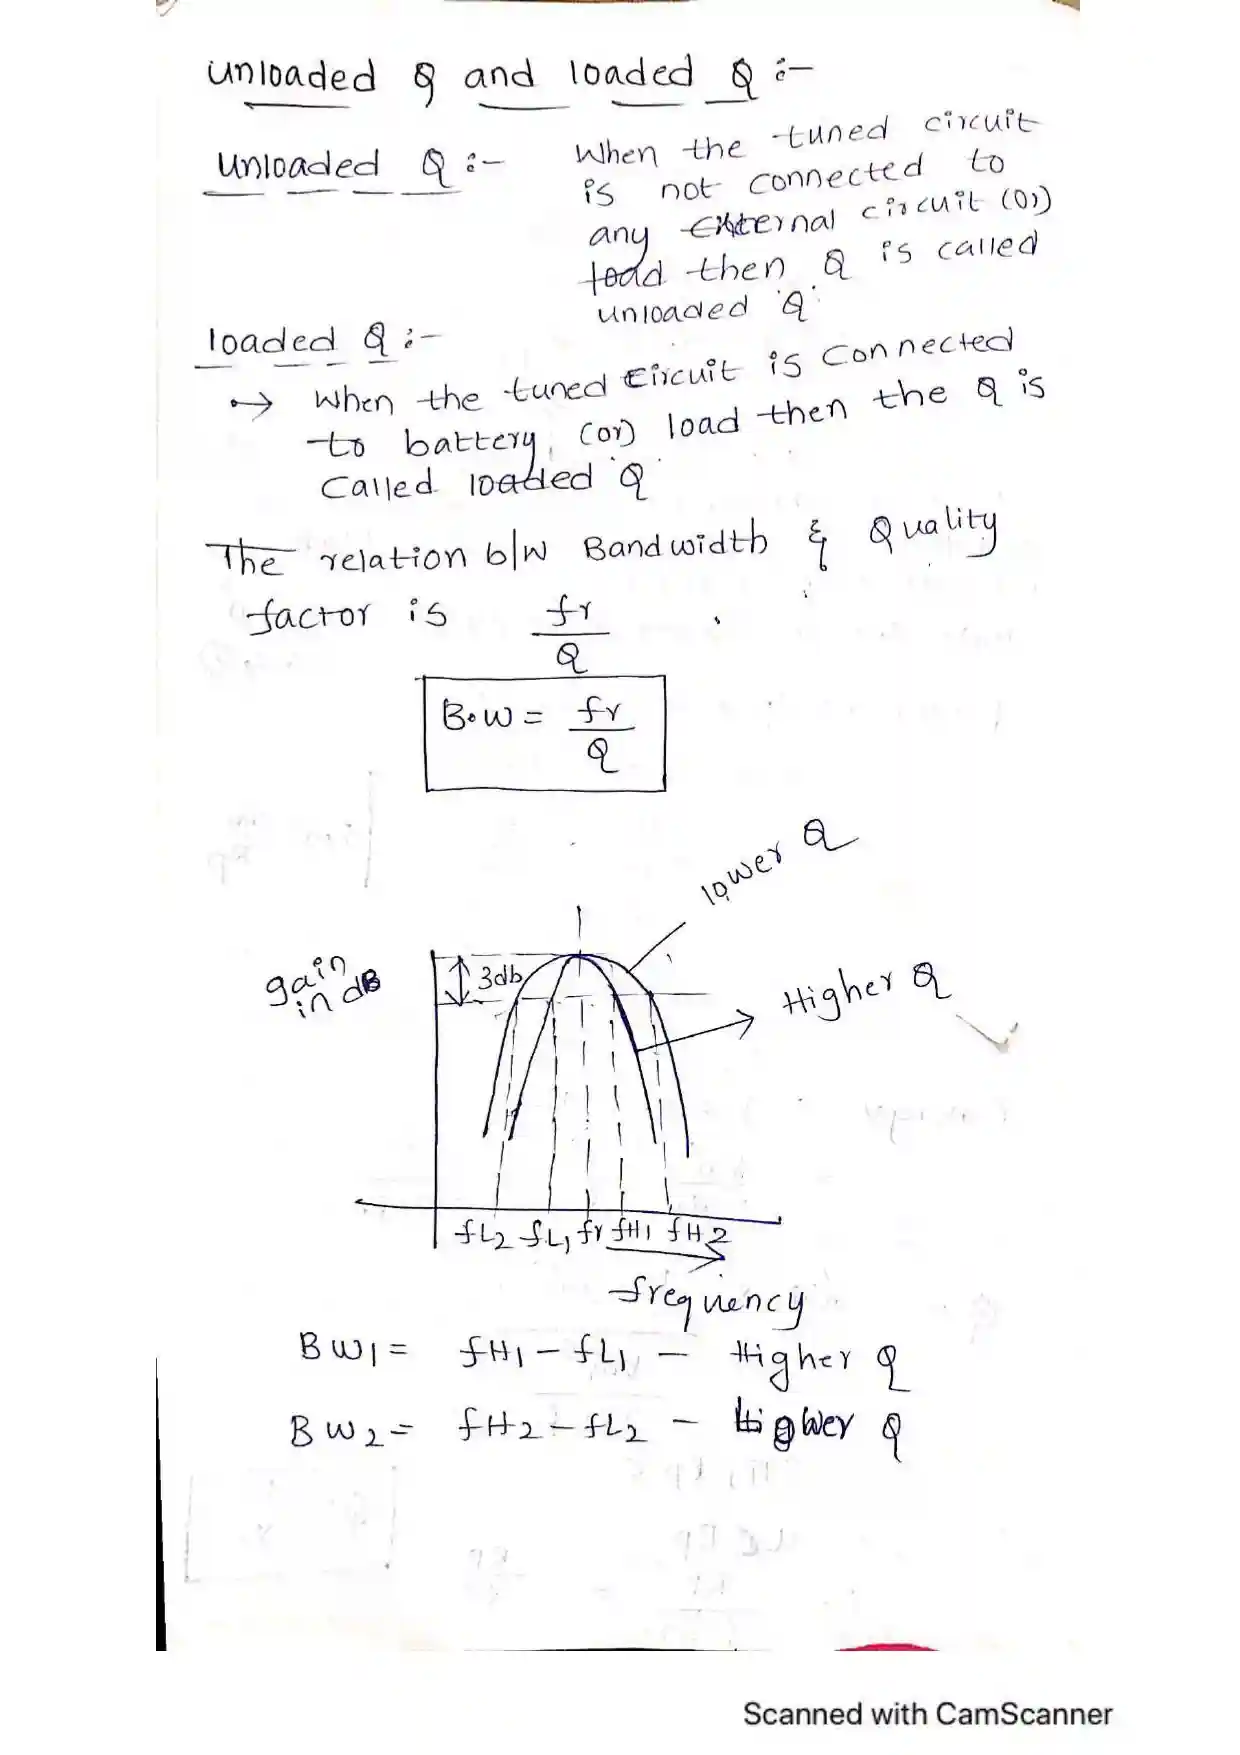 unloaded Q and loaded Q :-
unloaded Q :-
When the tuned circuit
is not connected to
any external circuit (or)
load then Q is called
unloaded 'Q'
loaded Q :-
→ When the tuned circuit is connected
to battery, (or) load then the Q is
called loaded 'Q'
The relation b/w Bandwidth & Quality
factor is fr/Q
B.W = fr/Q
lower Q
gain
in dB
3db
Higher Q
fL2 fL1 fr fH1 fH2
frequency
BW1 = fH1 - fL1 - Higher Q
BW2 = fH2 - fL2 - lower Q
Scanned with CamScanner